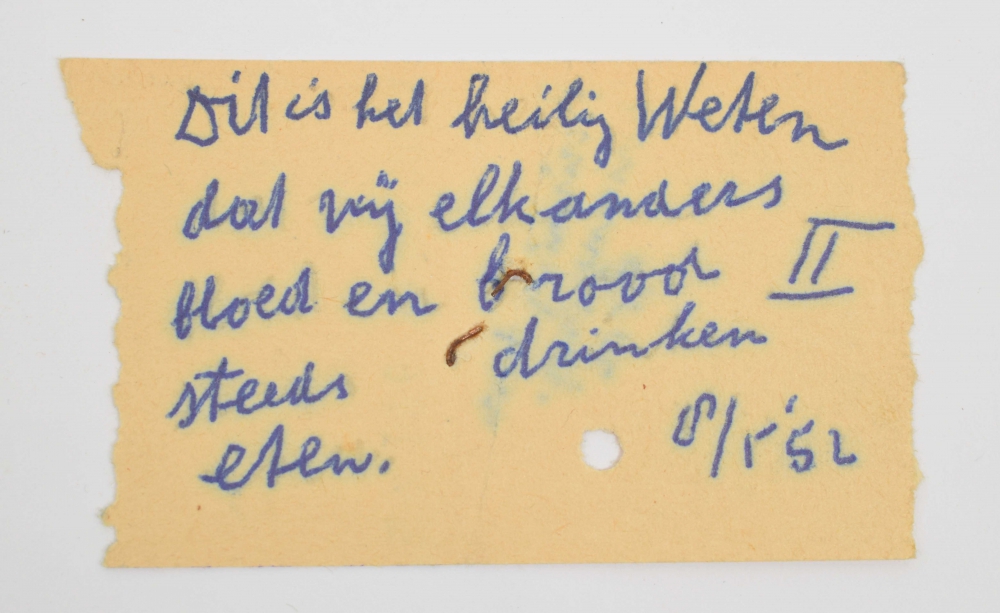 Dit is het heilig Weten
dat wij elkanders
bloed en brood II
steeds drinken
eten.
8/5 '52